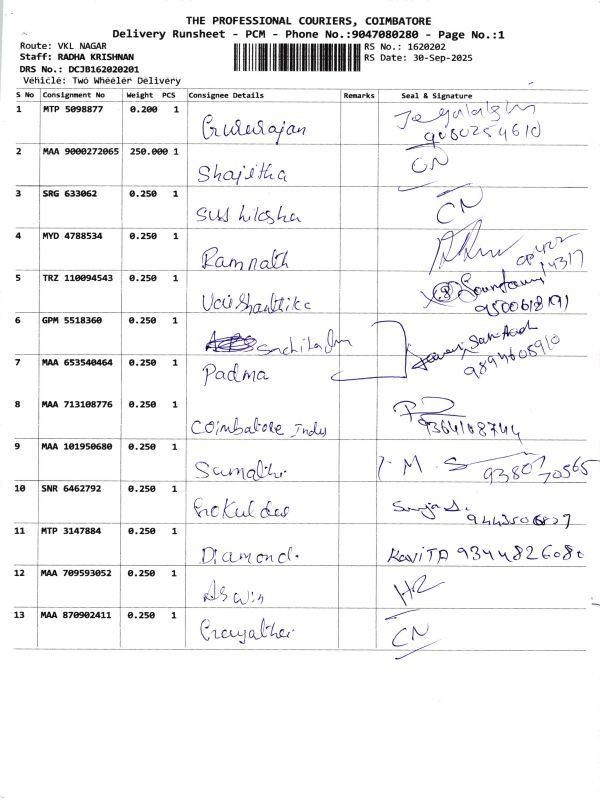 THE PROFESSIONAL COURIERS, COIMBATORE
Delivery Runsheet - PCM - Phone No.:9047080280 - Page No.:1
Route: VKL NAGAR
RS No.: 1620202
Staff: RADHA KRISHNAN
RS Date: 30-Sep-2025
DRS No.: DCJB162020201
Vehicle: Two Wheeler Delivery
S No Consignment No Weight PCS Consignee Details Remarks Seal & Signature
1 MTP 5098877 0.200 1 Gururajan
2 MAA 9000272065 250.000 1 Shajitha CN
3 SRG 633062 0.250 1 CN
4 MYD 4788534 0.250 1 Ramnath
5 TRZ 110094543 0.250 1
6 GPM 5518360 0.250 1
7 MAA 653540464 0.250 1 Padma
8 MAA 713108776 0.250 1 Coimbatore Indus
9364108744
9 MAA 101950680 0.250 1 Sumathi
10 SNR 6462792 0.250 1 Gokul das
11 MTP 3147884 0.250 1 Diamond. KaviTA 9344826080
12 MAA 709593052 0.250 1 Aswin
13 MAA 870902411 0.250 1 CN